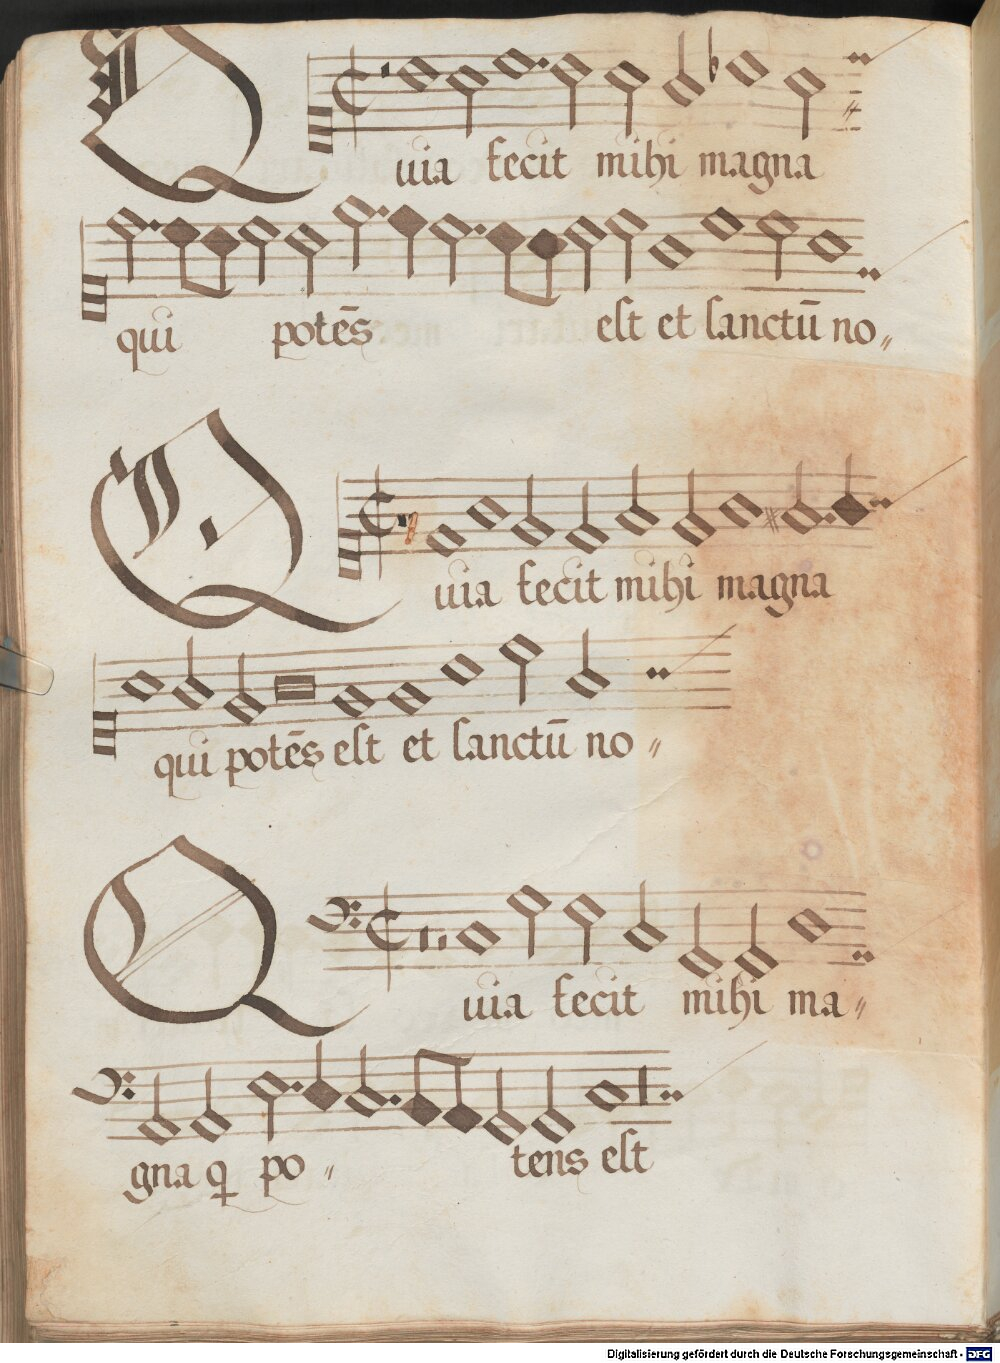 Quia fecit mihi magna
qui potēs est et sanctū no〃
Quia fecit mihi magna
qui potēs est et sanctū no〃
Quia fecit mihi ma〃
gna ꝗ po〃 tens est
Digitalisierung gefördert durch die Deutsche Forschungsgemeinschaft - DFG